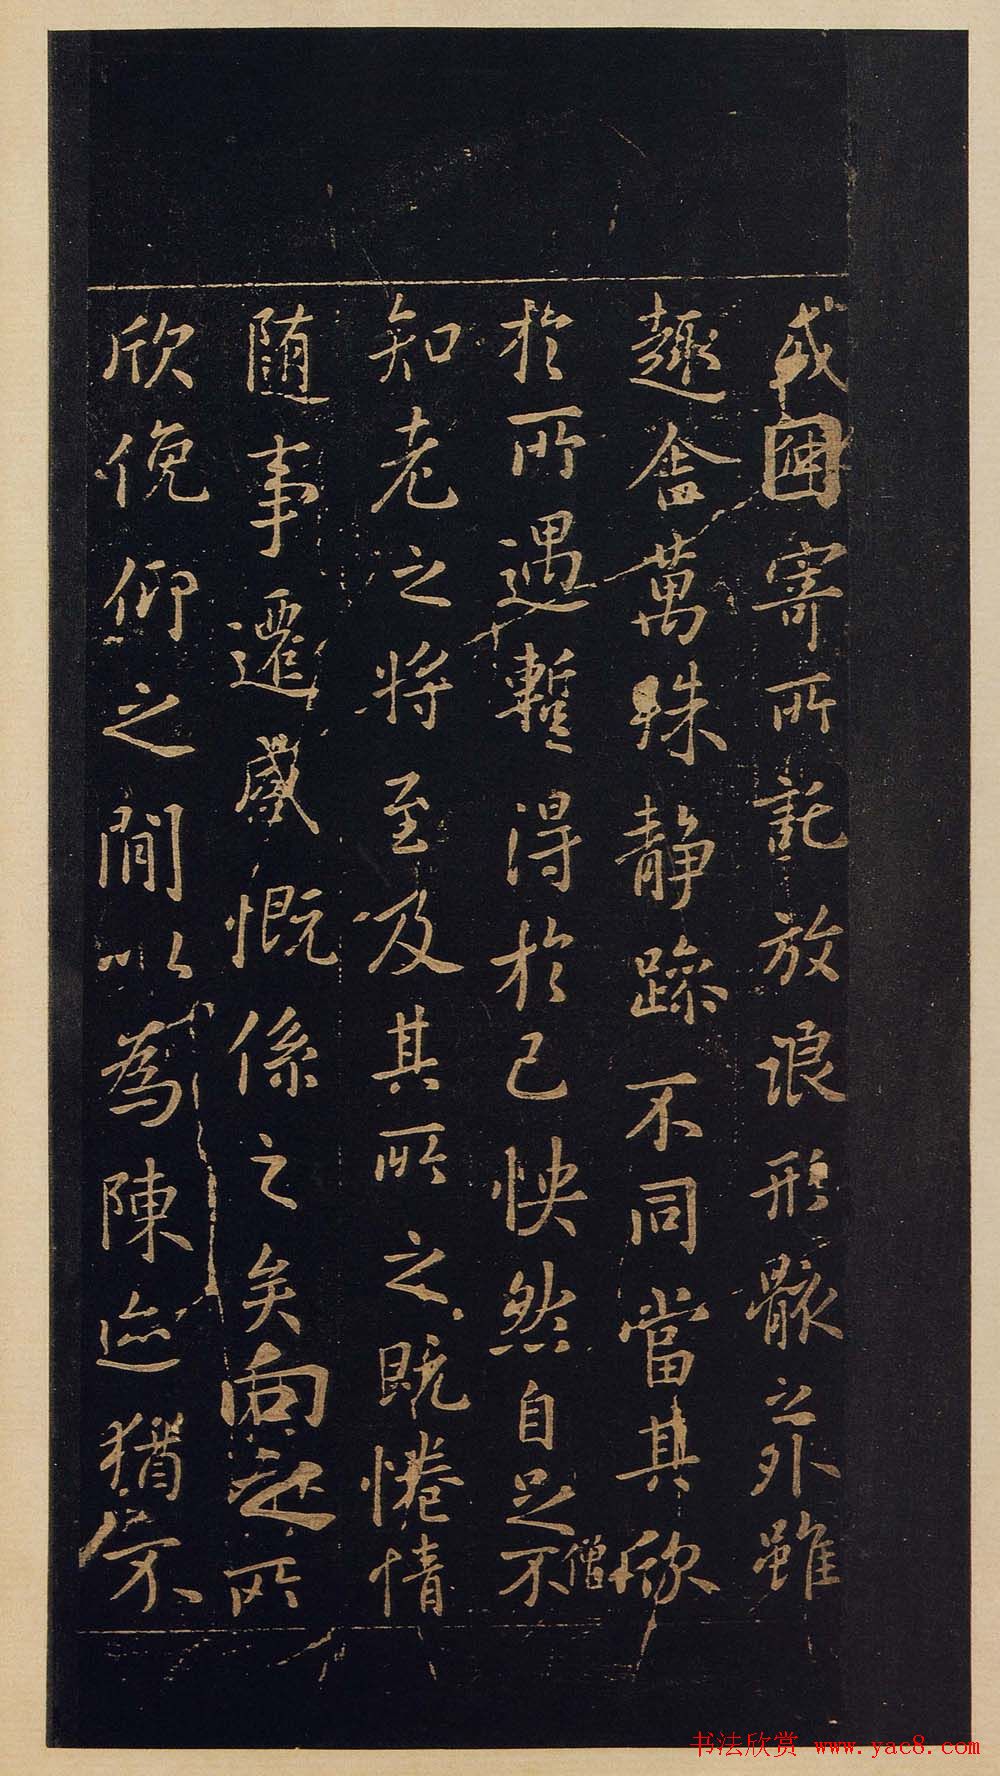 或因寄所託放浪形骸之外雖
趣舍萬殊静躁不同當其欣
於所遇暫得於己怏然自足不
僧
知老之将至及其所之既惓情
随事遷感慨係之矣向之所
欣俛仰之間以為陳迹猶不
书法欣赏 www.yac8.com